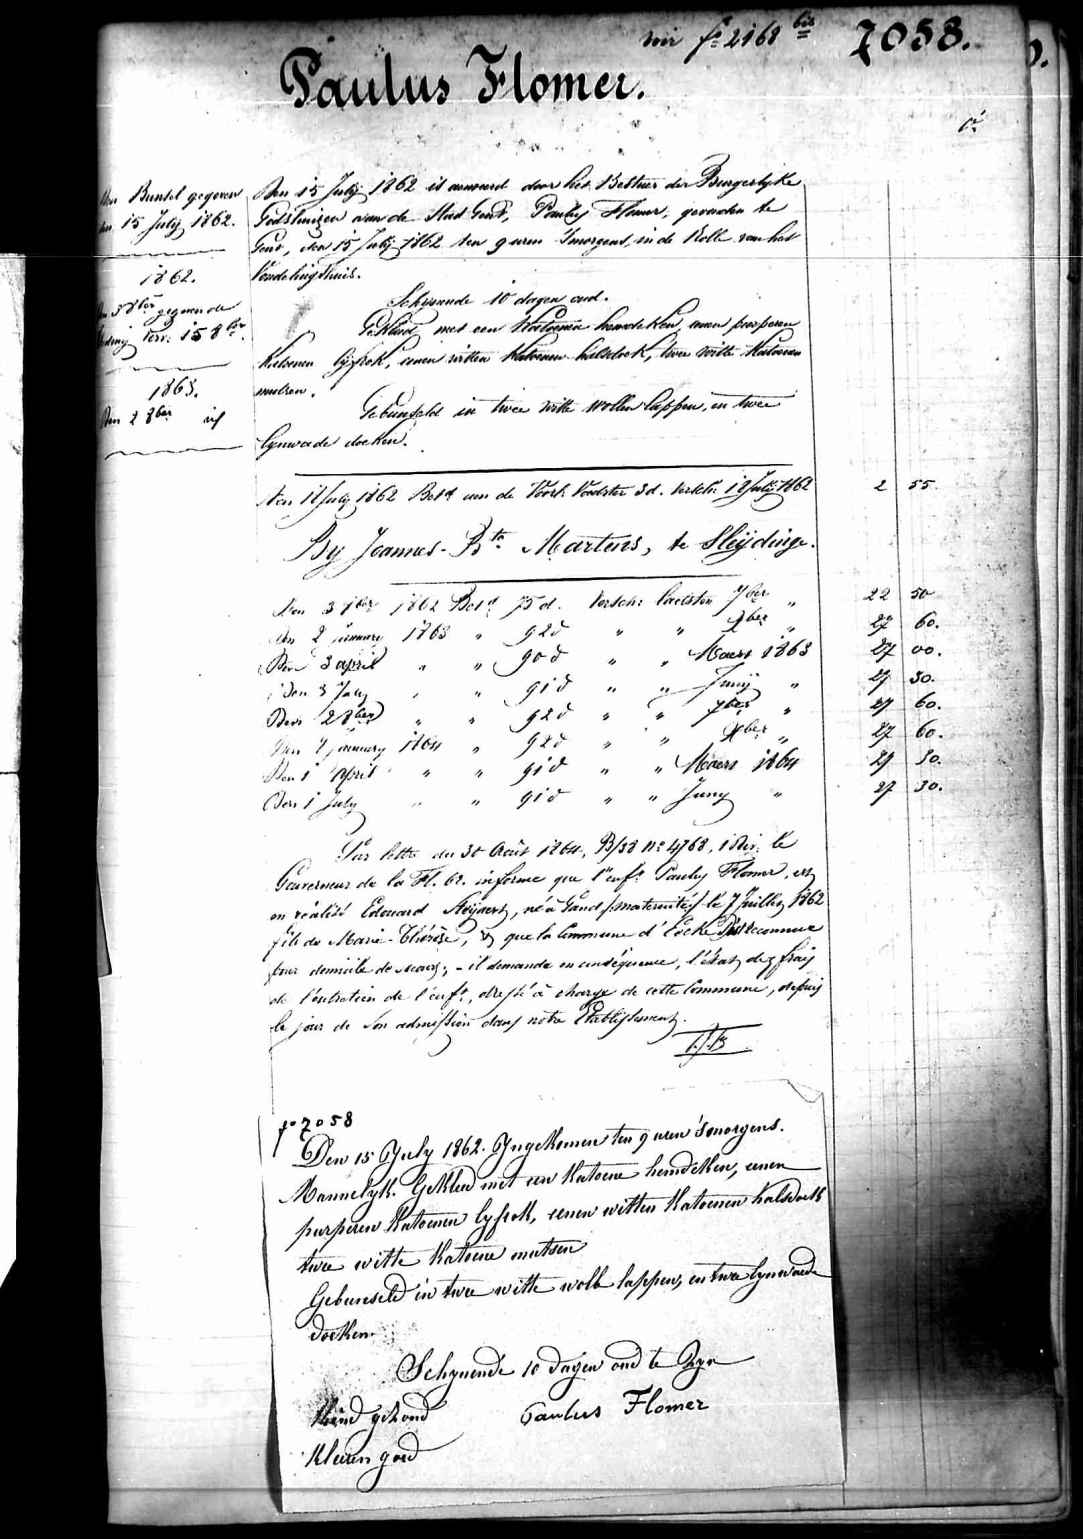 voir f° 2168 bis
7058.
Paulus Flomer.
Den Bundel gegeven
den 15 July 1862.
1862.
Den 3 8ber gegeven de
1863.
Den 2 8ber
Den 15 July 1862 is aanveerd door het Bestuer der Burgerlyke
Godshuizen van de Stad Gent, Paulus Flomer, gevonden te
Gent, den 15 July 1862 ten 9 uren 's morgens, in de Rolle van het
Vondelinghuis.
Schynende 10 dagen oud.
Gekleed met een Katoenen hemdeken, eenen purperen
Katoenen lyfrok, eenen witten Katoenen halsdoek, twee witte Katoenen
mutsen.
Gebunseld in twee witte wollen lappen, en twee
lynwade doeken.
Den 18 July 1862 Betd aen de Voorl. Voedster 3 d. versch: 18 July 1862 2 55
By Joannes-Bte Martens, te Sleydinge.
Den 3 8ber 1862 Betd 75 d. Versch: laetsten 7ber „ 22 50
Den 2 january 1863 „ 92 d „ „ Xber „ 27 60.
Den 3 april „ „ 90 d „ „ Maert 1863 27 00.
Den 3 July „ „ 91 d „ „ Juny „ 27 30.
Den 2 8ber „ „ 92 d „ „ 7ber „ 27 60.
Den 7 january 1864 „ 92 d „ „ Xber „ 27 60.
Den 1 April „ „ 91 d „ „ Maert 1864 27 30.
Den 1 July „ „ 91 d „ „ Juny „ 27 30.
Par lettre du 30 Août 1864, B/38 N° 4768, 1 Div: le
Gouverneur de la Fl. Or. informe que l'enft Paulus Flomer, est
en réalité Edouard Steyaert, né à Gand (maternité) le 7 Juillet 1862
fils de Marie-Thérèse, & que la Commune d'Eecke s'est reconnue
pour domicile de secours; - il demande en conséquence, l'état des frais
de l'entretien de l'enft, dressé à charge de cette Commune, depuis
le jour de son admission dans notre Etablissement.
f° 7058
Den 15 July 1862. Yngekomen ten 9 uren 's morgens.
Mannelyk. Gekleed met een Katoene hemdeken, eenen
purperen Katoenen lyfrok, eenen witten Katoenen halsdoek
twee witte Katoene mutsen
Gebunseld in twee witte wolle lappen, en twee lynwaede
doeken
Schynende 10 dagen oud te Zyn
Kind gezond Paulus Flomer
Kleeren goed